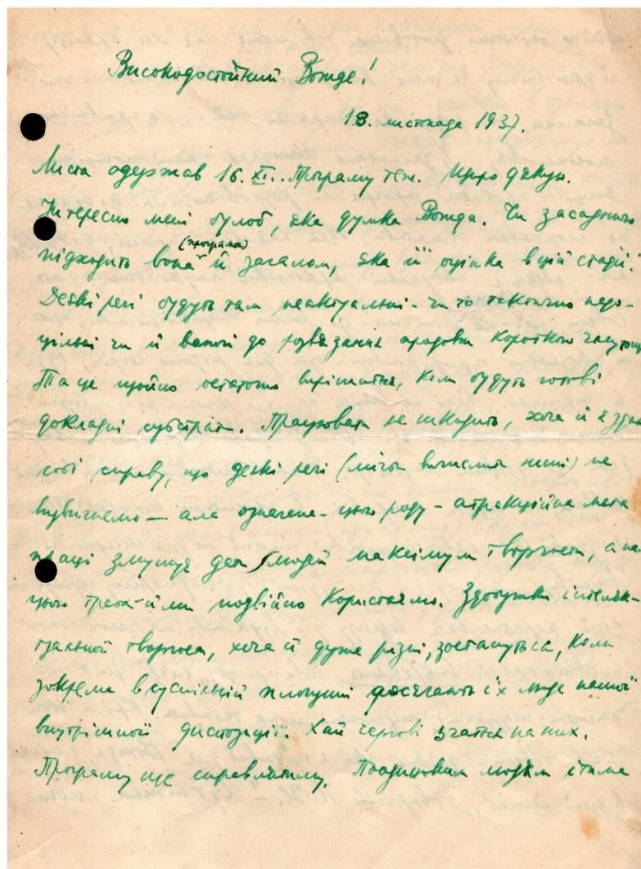 Високодостойний Вожде!
18. листопада 1937.
Листа одержав 16. XI.. Програму теж. Щиро дякую.
Інтересно мені було б, яка думка Вождя. Чи засадничо
(програма)
підходить вона й загалом, яка її оцінка в цій стадії.
Деякі речі будуть там неактуальні - чи то тактично недо-
цільні чи й важкі до розвязання впродовж короткого часу
Та це щойно остаточно вирішиться, коли будуть готові
докладні субстрати. Працювати не шкодить, хоча й я здаю
собі справу, що деякі речі (мігби вичислити нині) не
видвигнемо — але означена - цього роду - атракційна мета
праці змушує людей максімум творчости, а на
цього треба й ми подвійно користаємо. Здобутки інтелек-
туальної творчости, хоча й дуже різні, зостануться, коли
зокрема в суспільній площині досягають їх люде нашої
внутрішної диспозиції. Хай чергові
Програму ще справлятиму. Поодиноким людям